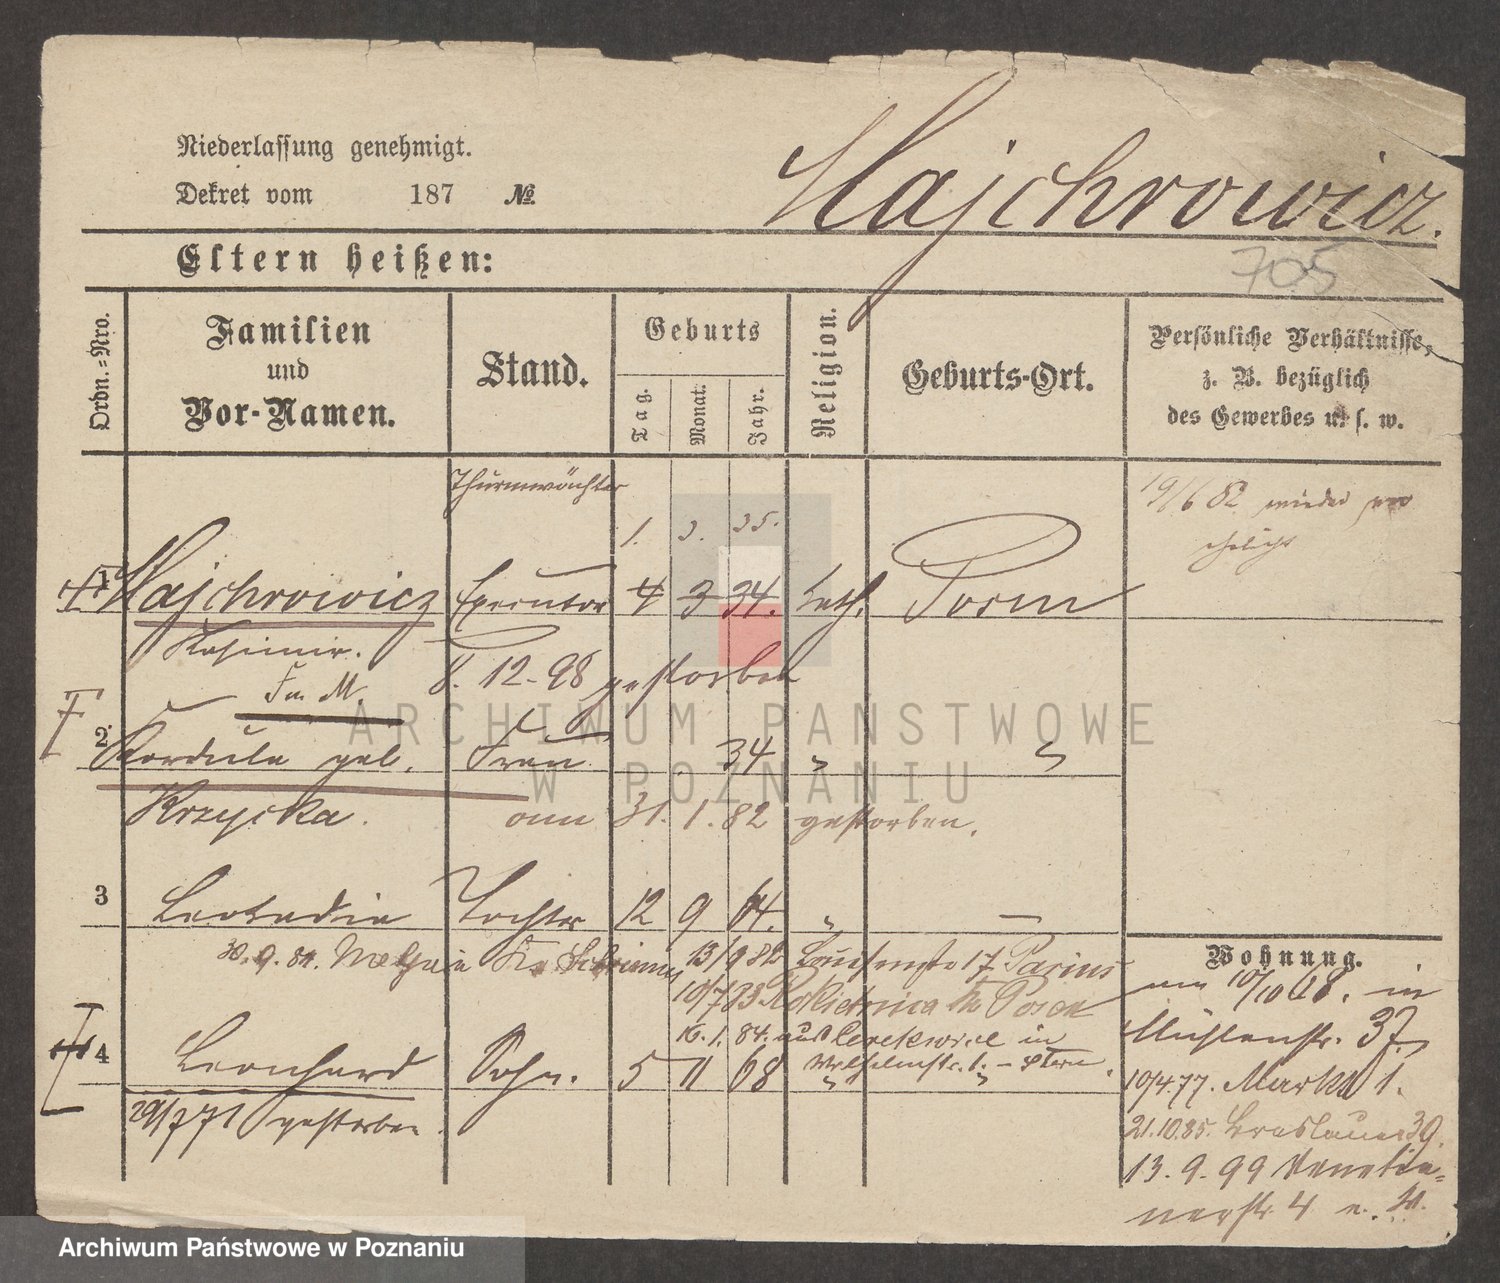 Niederlassung genehmigt.
Dekret vom 187 №
Hajchrowicz.
705
Eltern heißen:
Ordn.=Nro.
Familien
und
Vor-Namen.
Stand.
Geburts
Tag.
Monat.
Jahr.
Religion.
Geburts-Ort.
Persönliche Verhältnisse,
z. B. bezüglich
des Gewerbes u. s. w.
Thurmwächter
1. 3. 35.
19/6 82 wieder ver
ehelicht
1 Hajchrowicz Executor 4 3 34. kath. Posen
Kasimir.
8. 12. 98 gestorben
2 Kordula geb. Frau 34 " "
Krzycka. am 31. 1. 82 gestorben.
3 Leokadia Tochter 12 9 64. " —
30. 9. 84. 13/9 82 Louisenstr 17
10/7 83 Rokietnica Kr Posen
16. 1. 84. aus Cerekwice in
Wilhelmstr. 1.
4 Leonhard Sohn. 5 11 68 " "
29/7 71 gestorben.
Wohnung.
am 10/10 68. in
Mühlenstr. 37.
10/4 77. Markt 1.
21.10.85. Breslauer 39.
13. 9. 99 Venetia=
nerstr 4
ARCHIWUM PAŃSTWOWE
W POZNANIU
Archiwum Państwowe w Poznaniu